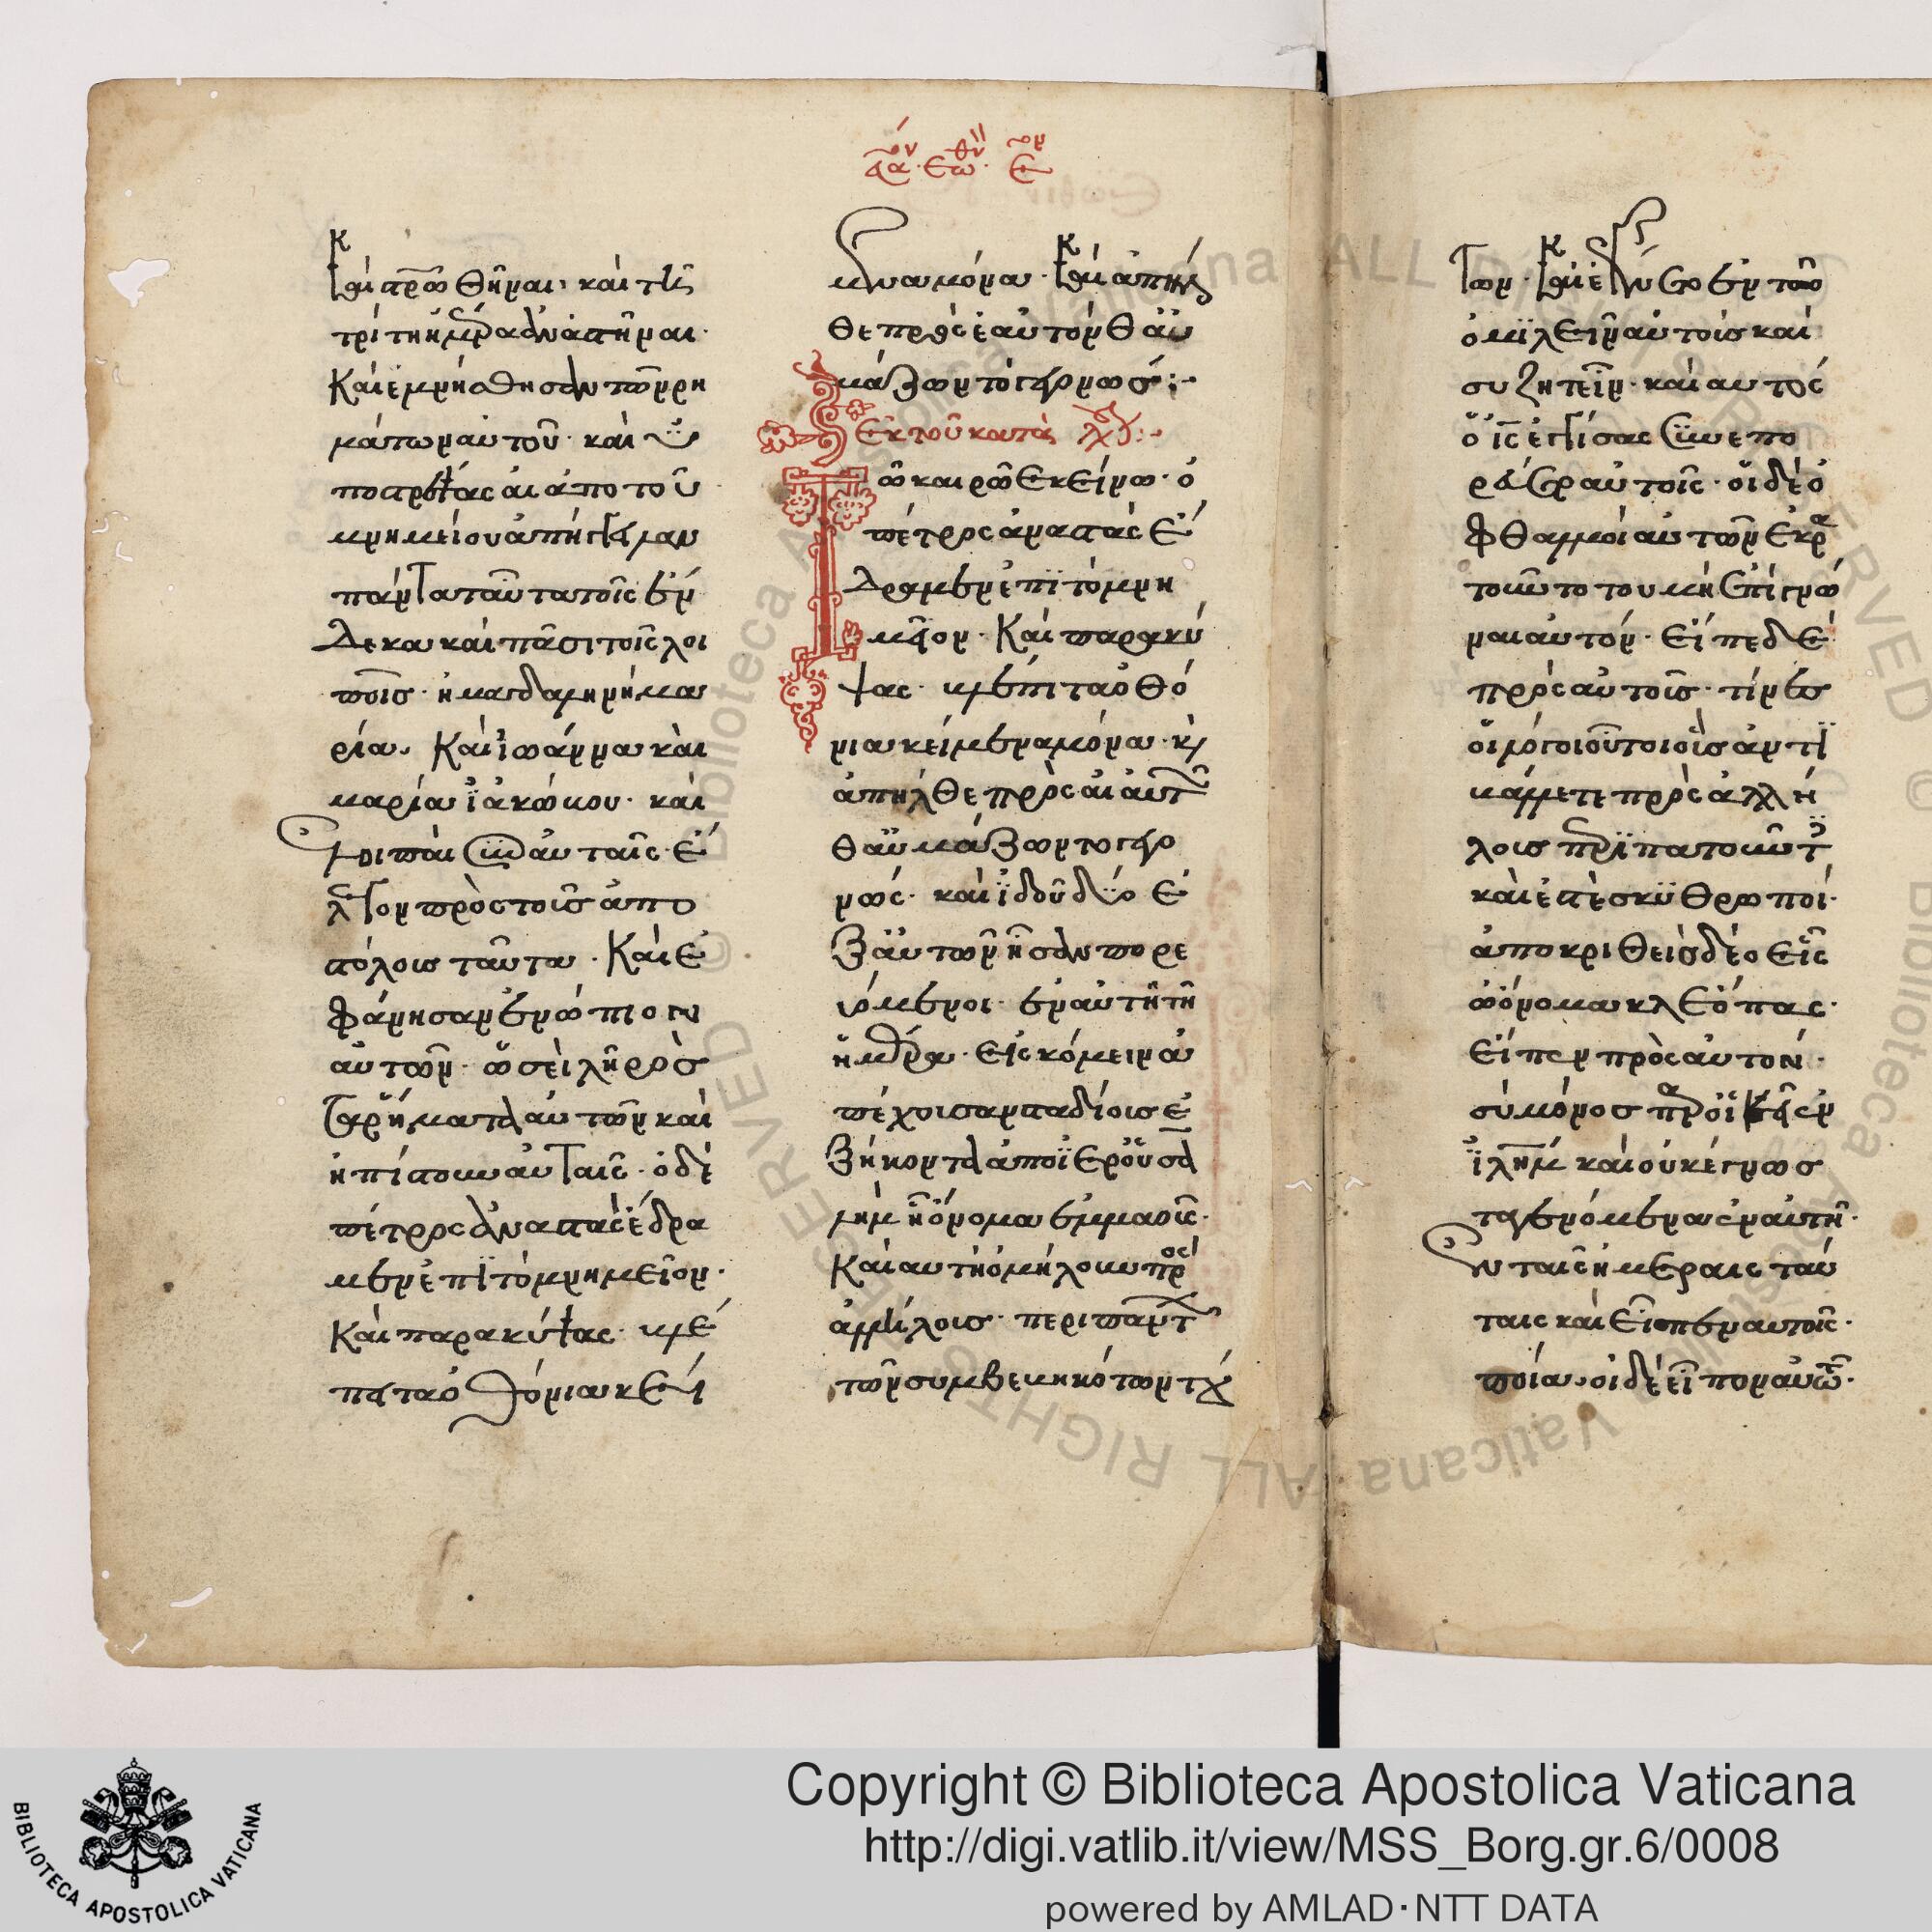 καὶ σταυρωθῆναι· καὶ τῇ
τρίτη ἡμέρα ἀναστῆναι·
Καὶ ἐμνήσθησαν τῶν ρη
μάτων αὐτοῦ· καὶ ϋ
ποστρέψασαι ἀπὸ τοῦ
μνημείου ἀπήγγειλαν
πάντα ταῦτα τοῖς ἕν
δεκα καὶ πᾶσι τοῖς λοι
ποῖς· ἡ μαγδαληνὴ μα
ρία. Καὶ ἰωάννα καὶ
μαρία ϊακώβου· καὶ
λοιπαὶ σὺν αὐταῖς· ἔ
λεγον πρὸς τοὺς ἀπο
στόλους ταῦτα. Καὶ ἐ
φάνησαν ἐνώπιον
αὐτῶν· ὡσεὶ λῆρος
τὰ ῥήματα αὐτῶν καὶ
ἠπίστουν αὐταῖς· ὁ δὲ
πέτρος ἀναστὰς ἔδρα
μεν ἐπὶ τὸ μνημεῖον·
Καὶ παρακύψας· βλέ
πει τὰ ὀθόνια κεί
μενα μόνα· καὶ ἀπῆλ
θε πρὸς ἑαυτὸν θαυ
μάζων τὸ γεγονώς:·
Ἐκ τοῦ κατὰ
Τῶ καιρῶ ἐκείνω· ὁ
πέτρος ἀναστὰς ἔ
δραμεν ἐπὶ τὸ μνη
μεῖον· Καὶ παρακύ
ψας· βλέπει τὰ ὀθό
νια κείμενα μόνα· κ̀
ἀπῆλθε πρὸς ἑαυτὸν
θαυμάζων τὸ γεγο
νώς· καὶ ἰδοὺ δύο ἐ
ξ αὐτῶν ἦσαν πορε
υόμενοι· ἐν αὐτῆ τῆ
ἡμέρα· εἰς κόμειν ἀ
πέχουσαν σταδίους ἑ
ξήκοντα ἀπὸ ϊερουσα
λὴμ ἧ ὄνομα ἐμμαούς·
Καὶ αὐτοὶ ὁμήλουν πρὸς
ἀλλήλους· περὶ πάντων
τῶν συμβεβηκότων τού
των· Καὶ ἐγένετο ἐν τῶ
ὁμϊλεῖν αὐτοὺς καὶ
συζητεῖν· καὶ αυτὸς
ὁ ἰς ἐγγίσας συνεπο
ρεύετο αὐτοῖς· οἱ δὲ ὀ
φθαλμοὶ αὐτῶν ἐκρα
τοῦντο του μὴ ἐπιγνῶ
ναι αὐτόν· Εἶπε δὲ
πρὸς αὐτούς· τίνες
οἱ λόγοι οὗτοι οὓς ἀντι
βάλλετε πρὸς ἀλλή
λους περϊπατοῦντες
καὶ ἐστὲ σκϋθρωποί·
ἀποκριθεὶς δὲ ὁ εἷς
ὧ ὄνομα κλεόπας·
εἶπεν πρὸς αὐτόν·
σὺ μόνος παροικεῖς ἐν
ϊλημ καὶ οὐκ ἔγνως
τὰ γενόμενα ἐν αὐτῆ·
Ἐν ταῖς ἡμέραις ταύ
ταις καὶ εἶπεν αυτοῖς·
ποία· οἱ δὲ εἶπον αὐτῶ·
Copyright © Biblioteca Apostolica Vaticana
http://digi.vatlib.it/view/MSS_Borg.gr.6/0008
powered by AMLAD·NTT DATA
BIBLIOTECA APOSTOLICA VATICANA